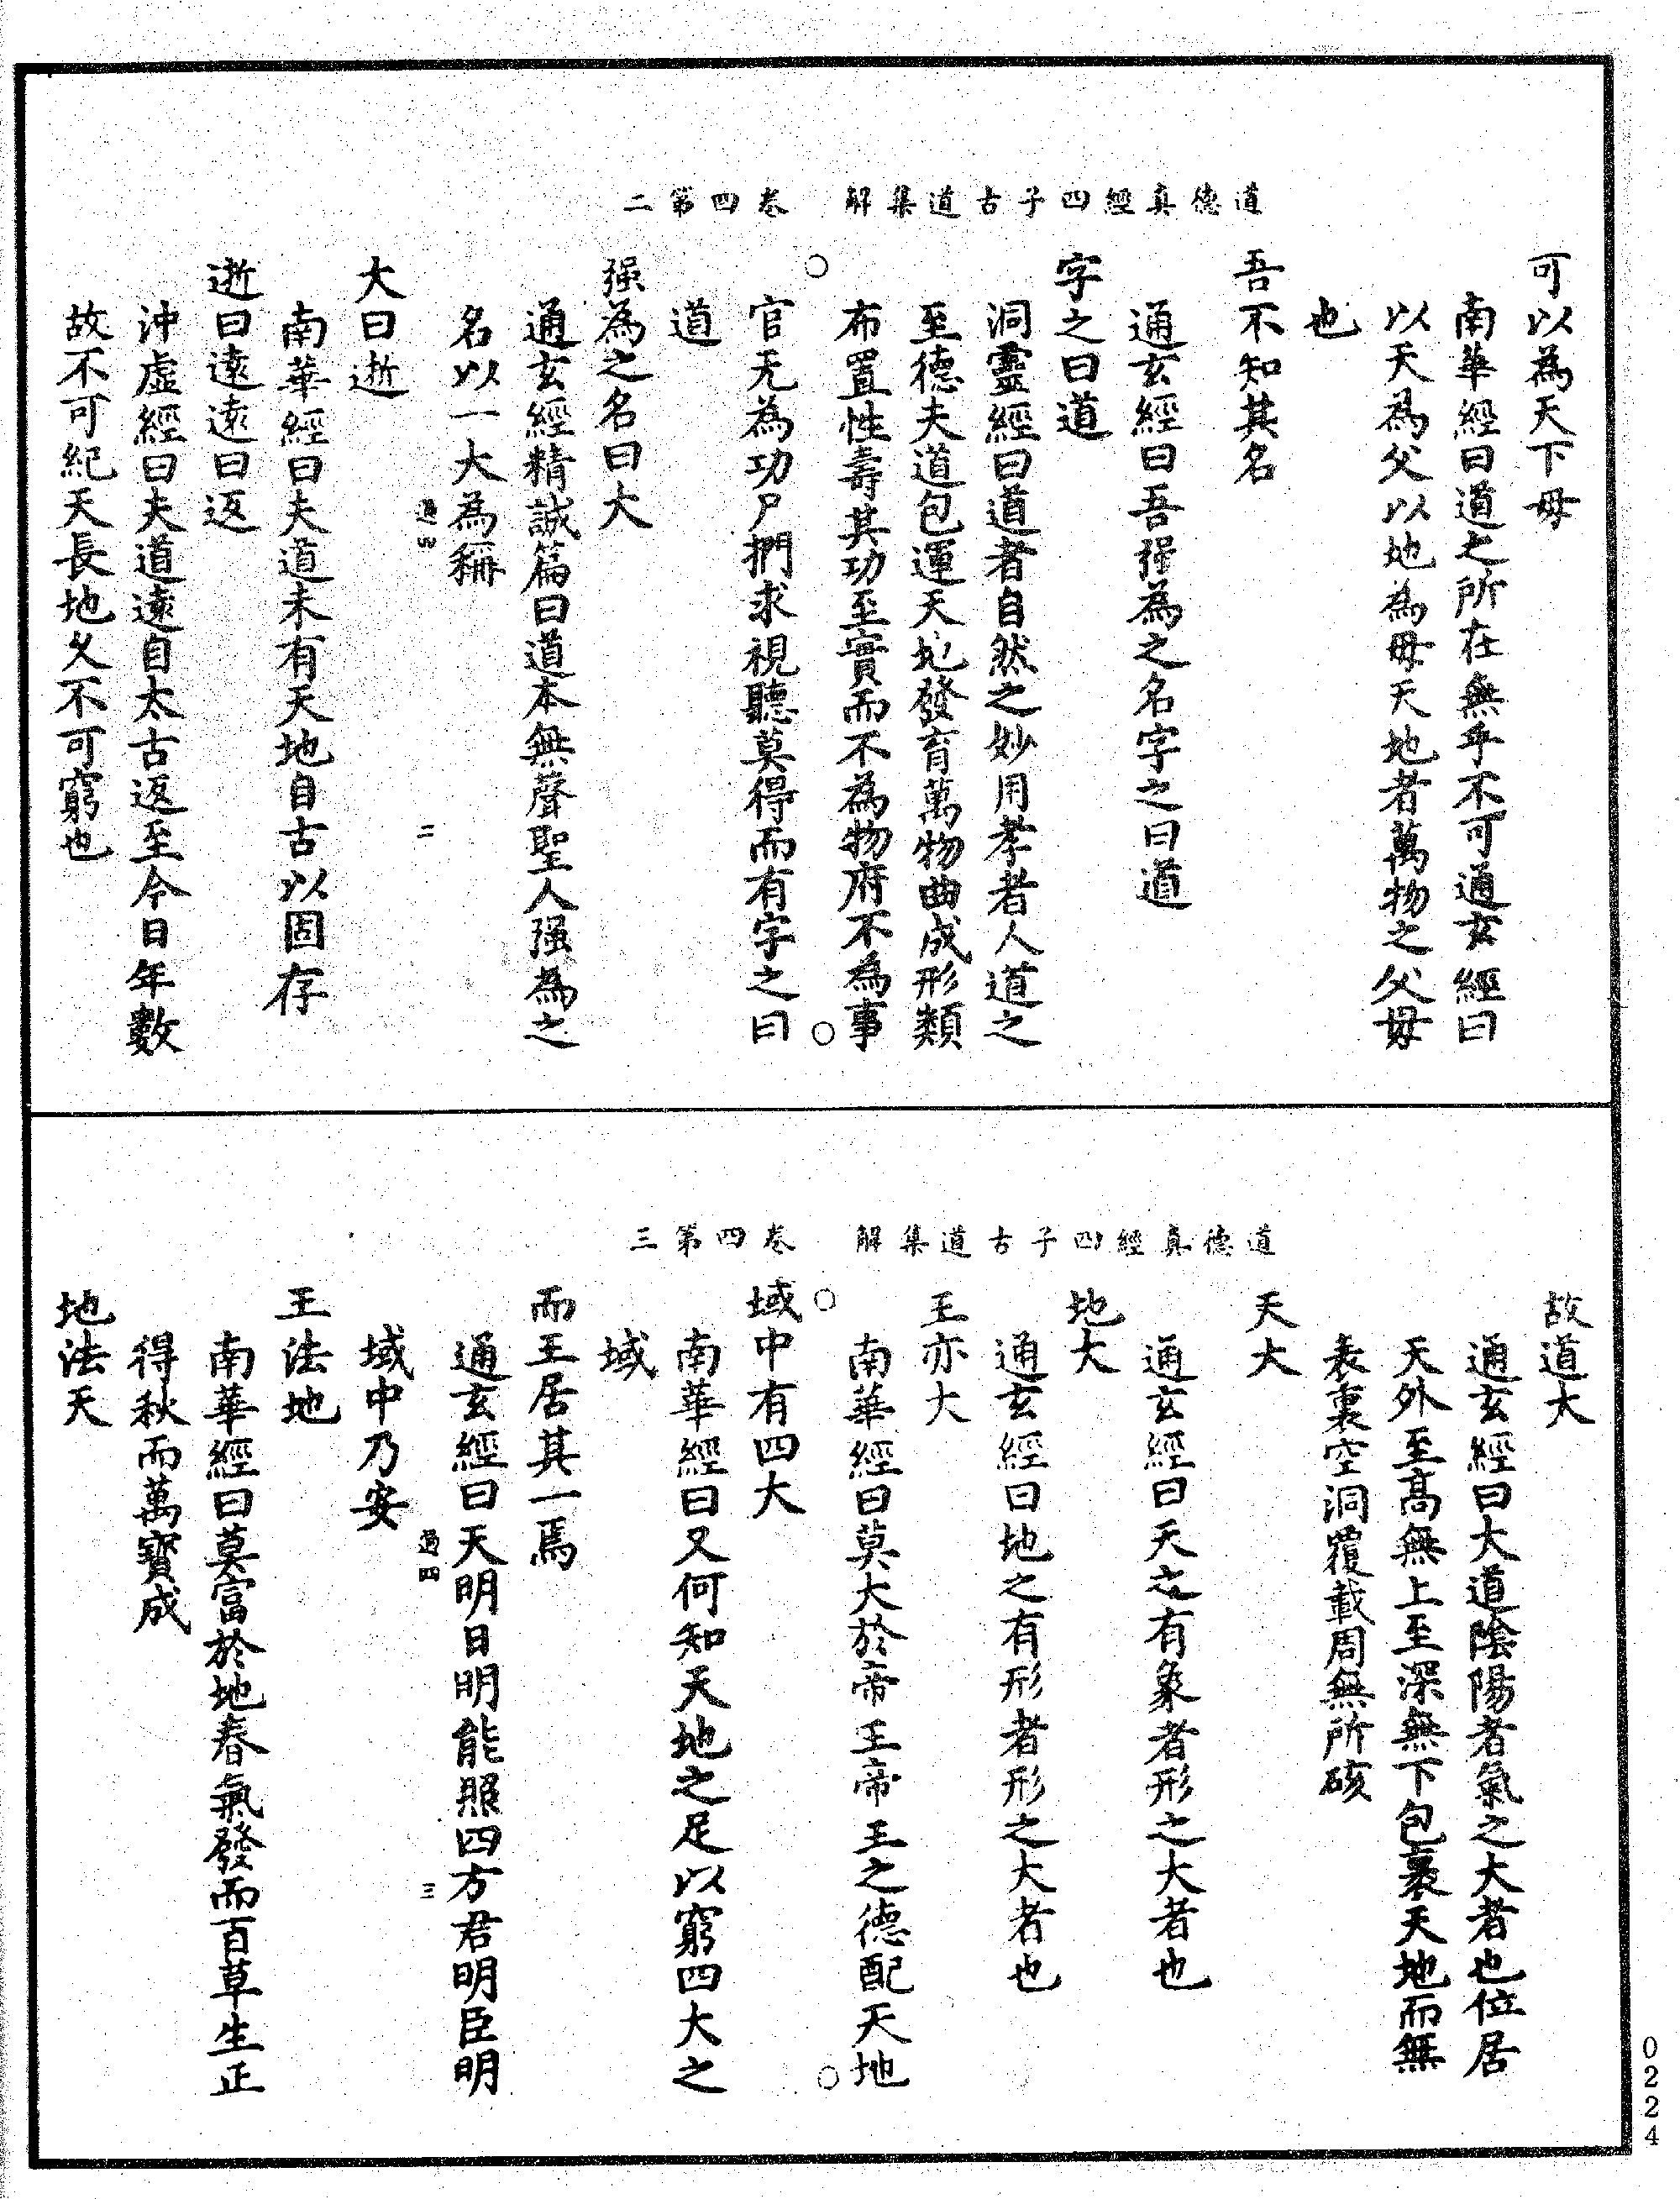 道德真經四子古道集解　卷四第二
可以為天下母
南華經曰道之所在無乎不可通玄經曰
以天為父以地為母天地者萬物之父母
也
吾不知其名
通玄經曰吾强為之名字之曰道
字之曰道
洞靈經曰道者自然之妙用孝者人道之
至德夫道包運天地發育萬物曲成形類
布置性壽其功至實而不為物府不為事
官无為功尸捫求視聽莫得而有字之曰
道
强為之名曰大
通玄經精誠篇曰道本無聲聖人强為之
名以一大為稱
過四　二
大曰逝
南華經曰夫道未有天地自古以固存
逝曰遠遠曰返
沖虛經曰夫道遠自太古返至今日年數
故不可紀天長地久不可窮也
道德真經四子古道集解　卷四第三
故道大
通玄經曰大道陰陽者氣之大者也位居
天外至高無上至深無下包裹天地而無
表裏空洞覆載周無所硋
天大
通玄經曰天之有象者形之大者也
地大
通玄經曰地之有形者形之大者也
王亦大
南華經曰莫大於帝王帝王之德配天地
域中有四大
南華經曰又何知天地之足以窮四大之
域
而王居其一焉
通玄經曰天明日明能照四方君明臣明
過四　三
域中乃安
王法地
南華經曰莫富於地春氣發而百草生正
得秋而萬寶成
地法天
0224